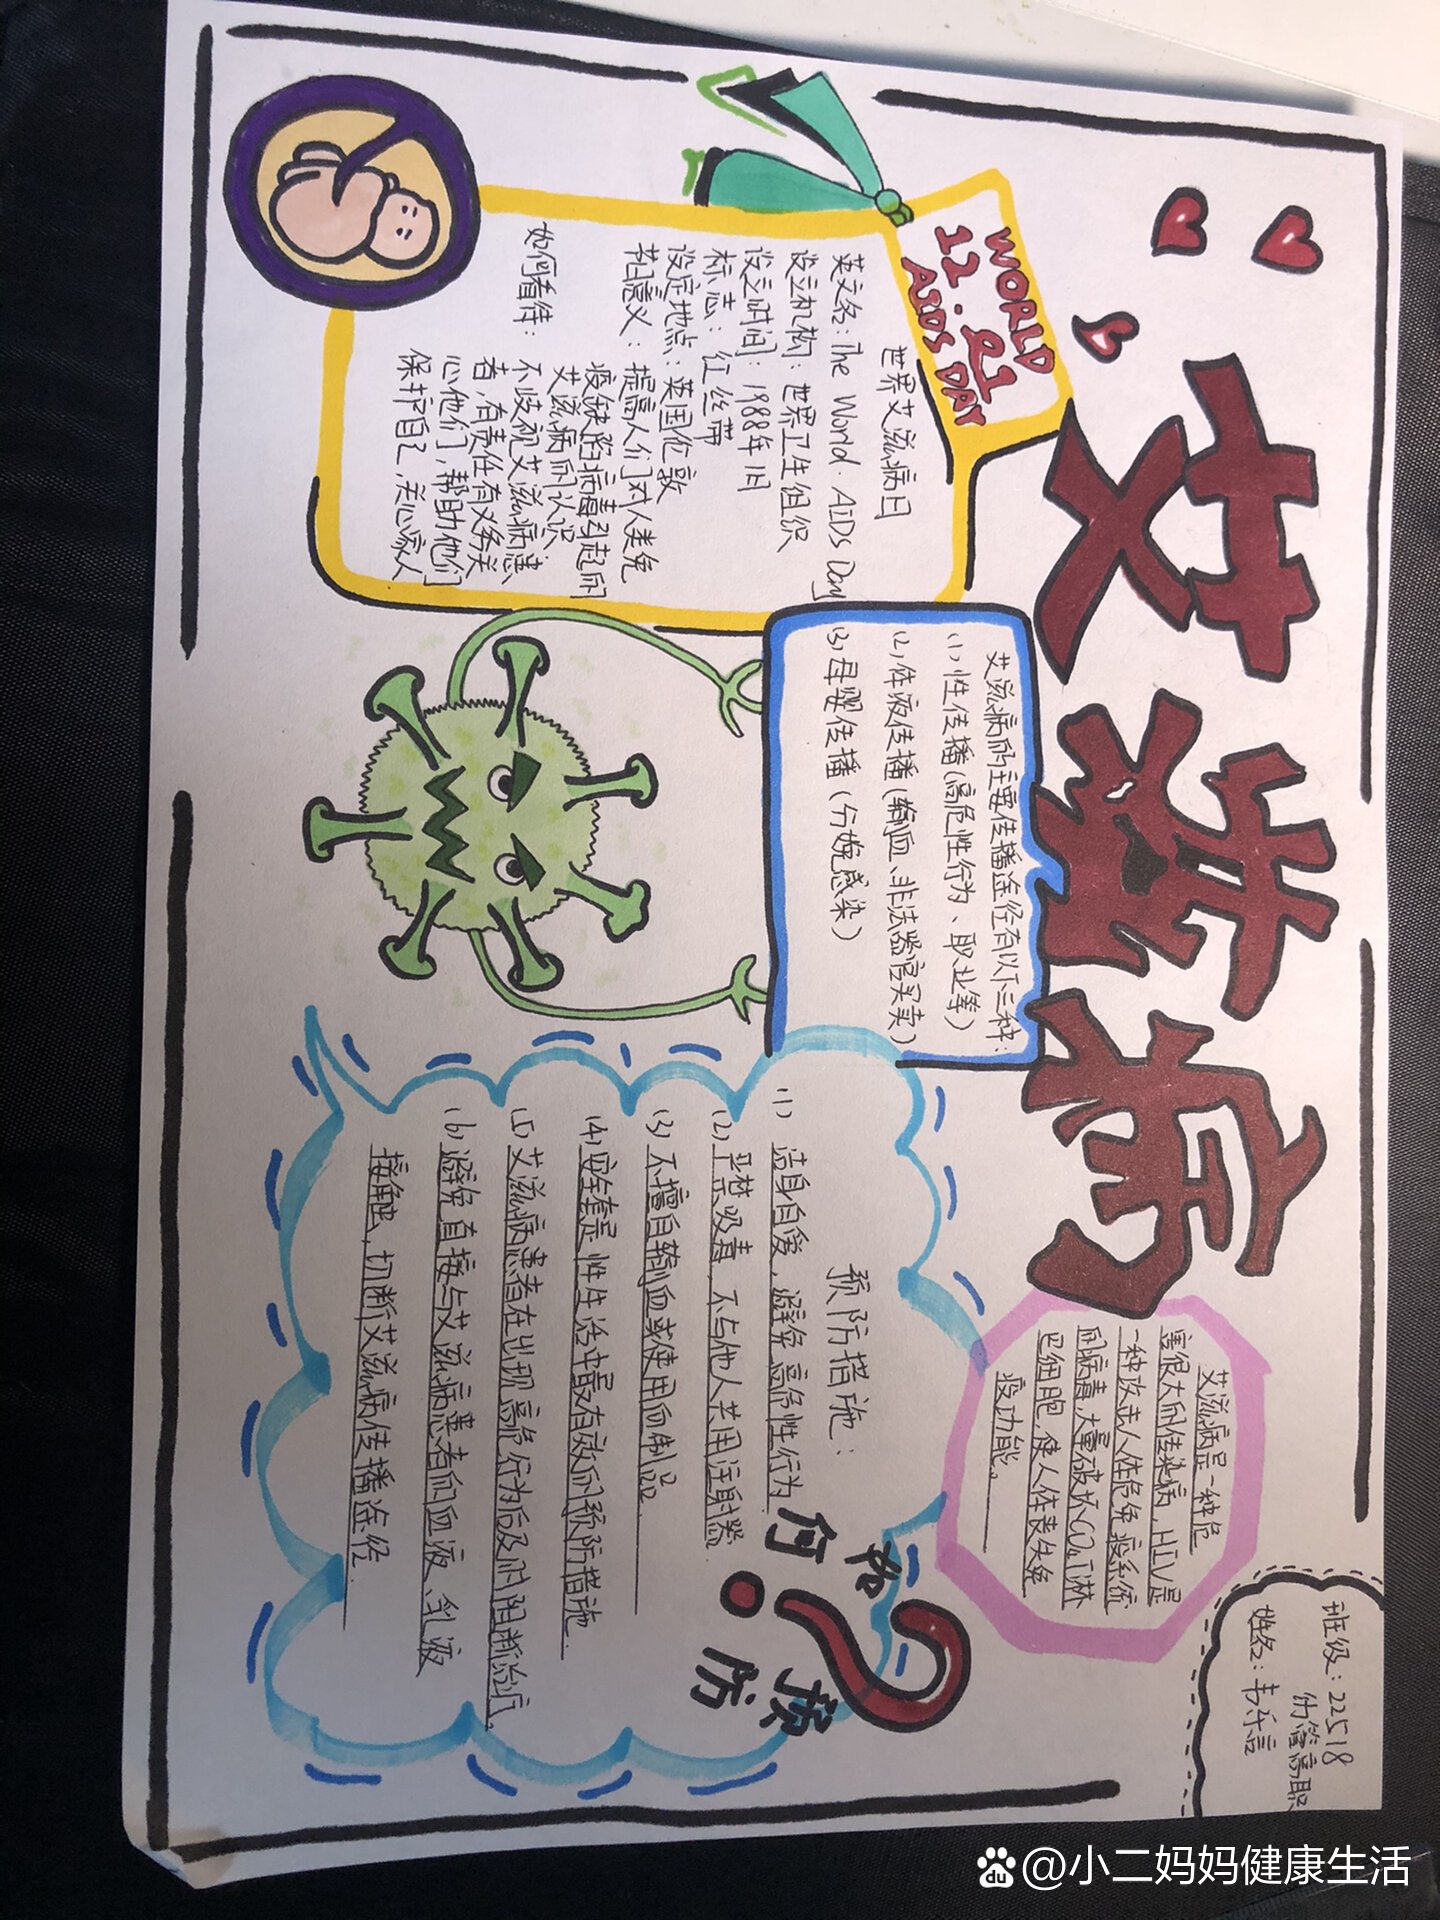 艾滋病
WORLD
12.01
AIDS DAY
世界艾滋病日
英文名：The World. AiDs Day
设立机构：世界卫生组织
设立时间：1988年1月
标志：红丝带
设定地点：英国伦敦
意义：提高人们对人类免
疫缺陷病毒引起的
艾滋病的认识
如何看待：
不歧视艾滋病患
者，有责任有义务关
心他们，帮助他们
保护自己，关心家人
艾滋病的主要传播途径有以下三种：
(1)性传播（高危性行为、职业等）
(2)体液传播（输血、非法器官买卖）
(3)母婴传播（分娩感染）
艾滋病是一种危
害很大的传染病，HIV是
一种攻击人体免疫系统
的病毒，大量破坏CD4T淋
巴细胞，使人体丧失免
疫功能。
班级：22518
姓名：韦乐言
如何
预防
?
预防措施：
(1)洁身自爱，避免高危性行为
(2)严禁吸毒，不与他人共用注射器
(3)不擅自输血或使用血制品
(4)安全套是性生活中最有效的预防措施.
(5)艾滋病患者在出现高危行为后及时阻断治疗，
(6)避免直接与艾滋病患者的血液、乳液
接触，切断艾滋病传播途径.
du @小二妈妈健康生活